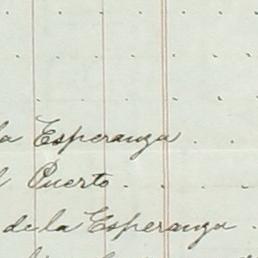 la Esperanza . .
l Puerto . . . .
de la Esperanza .